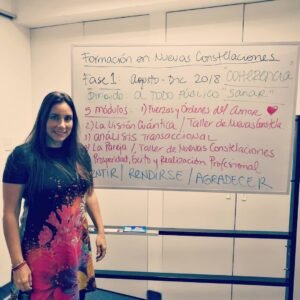 Formación en Nuevas Constelaciones
Fase 1 Agosto - Dic 2018 Coherencia
Dirigido a TODO PÚBLICO "sanar"
5 módulos 1) Fuerzas y Ordenes del Amor ♥
2) La Visión Cuántica / Taller de Nuevas Constela
3) ANÁLISIS TRANSACCIONAL
4) La Pareja / Taller de Nuevas Constelaciones
Prosperidad, Éxito y Realización Profesional
SENTIR / RENDIRSE / AGRADECER